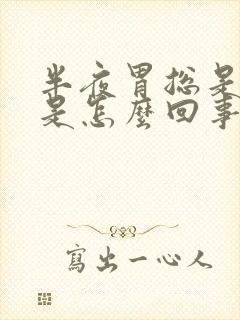 半夜胃總是
是怎麼回事
寫出一心人